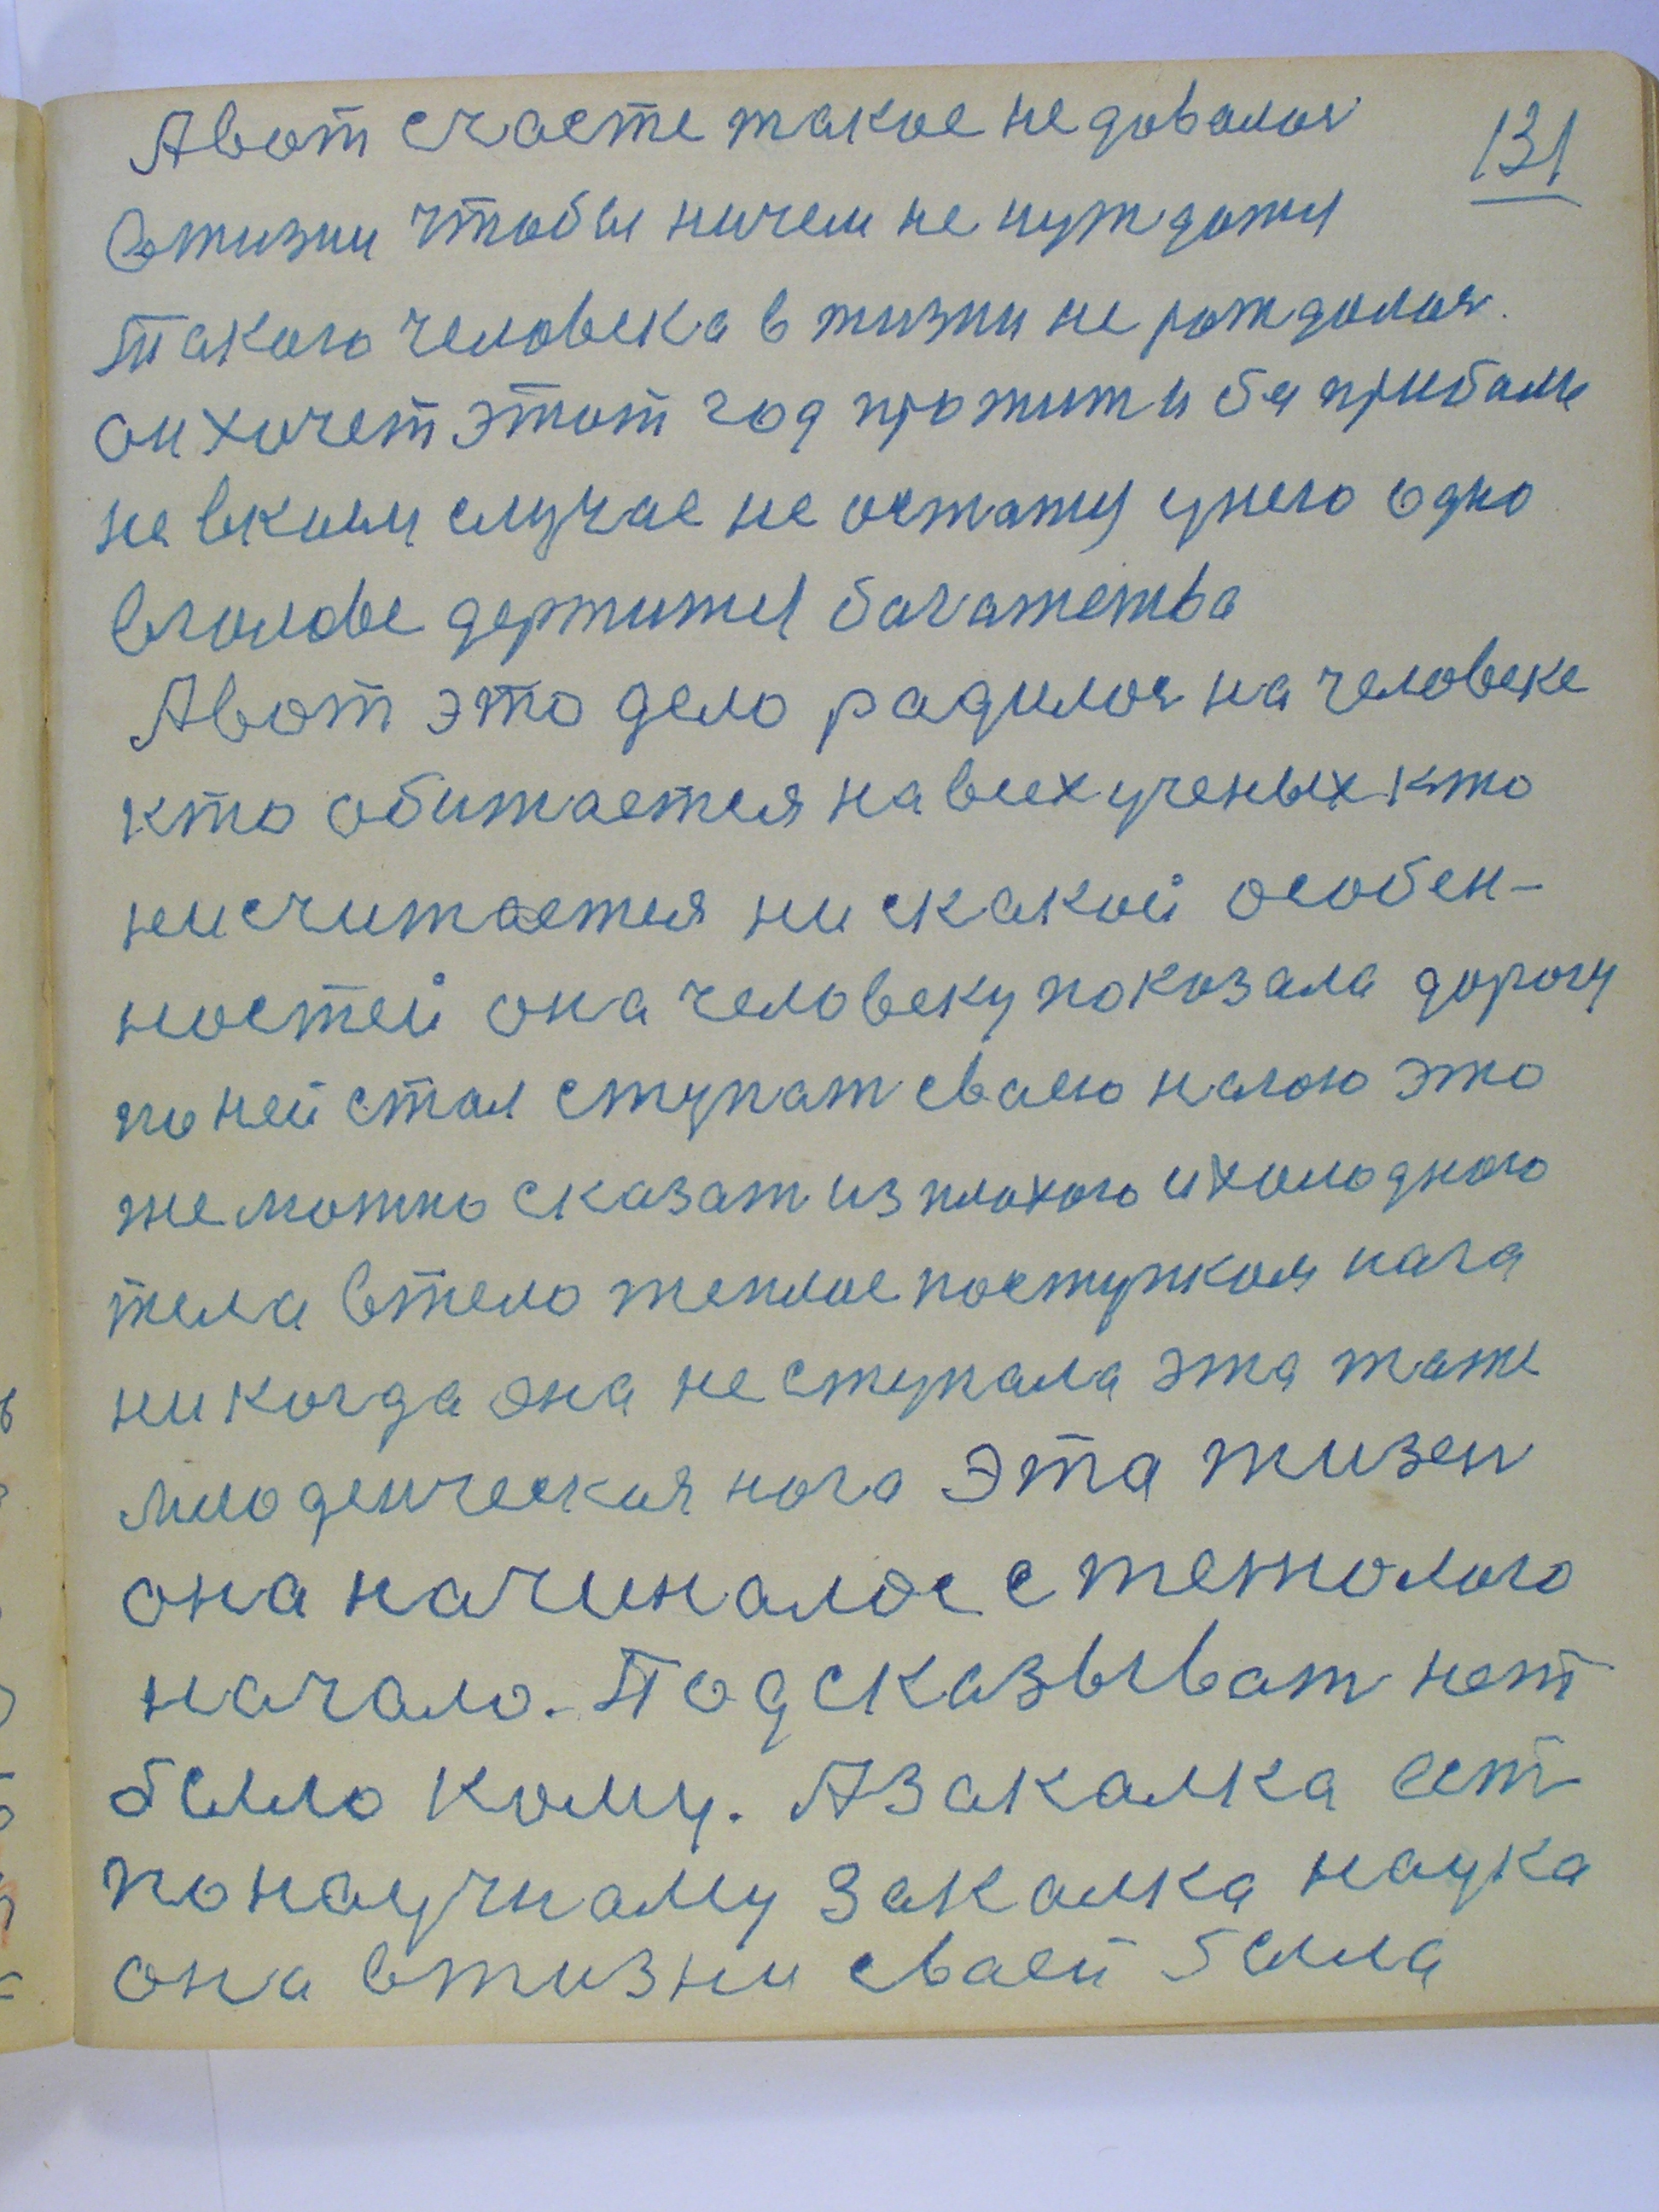 Авот счасте такое не довалос
131
вжизни чтобы ничем не нуждатся
такого человека в жизни не рождалос.
он хочет этот год прожит и бя прибоми
не вкоем случае не остатся унего одно
вголове держится багатства
Авот это дело радилос на человеке
кто обижается на всех ученых кто
несчитается ни с какой особен-
ностей она человеку показала дорогу
по ней стал ступат сваею нагою это
же можно сказат из плохого и холодного
тела в тело теплое поступком нага
никогда она не ступала эта таже
млоденческая нога Эта жизен
она начиналос с тежолого
начало. Подсказыват нет
было кому. А закалка ест
понаучнаму закалка наука
она вжизни сваей была